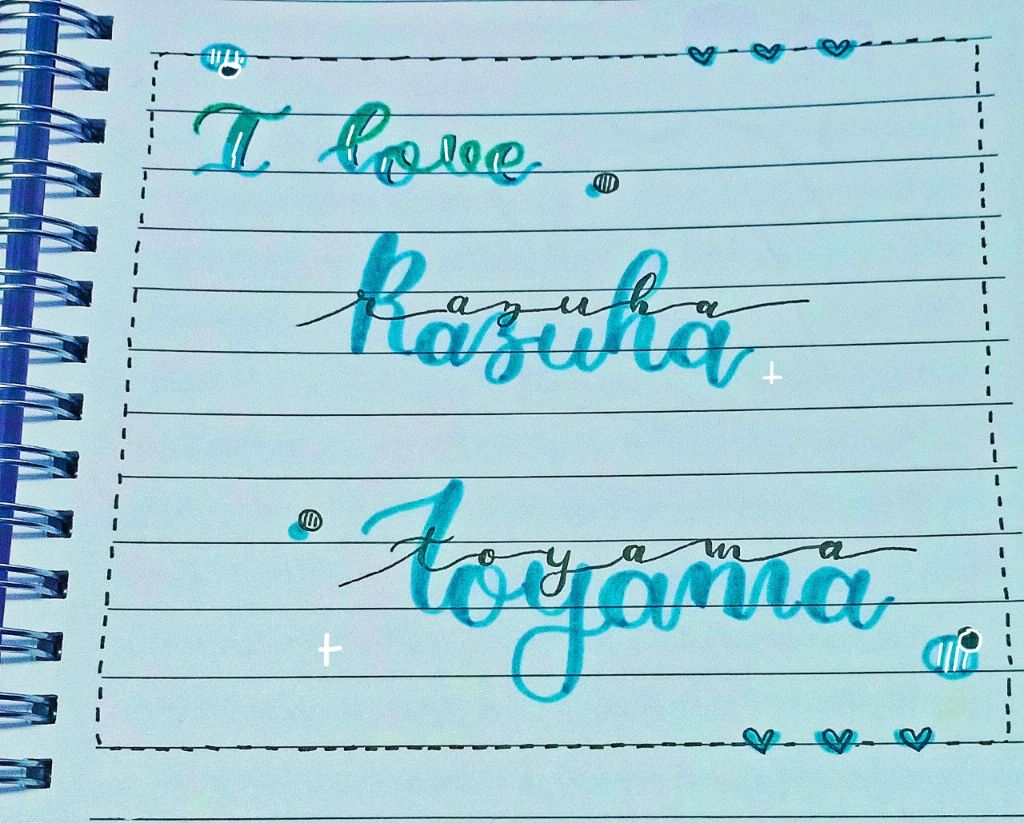 I love
Kazuha
kazuha
Toyama
toyama